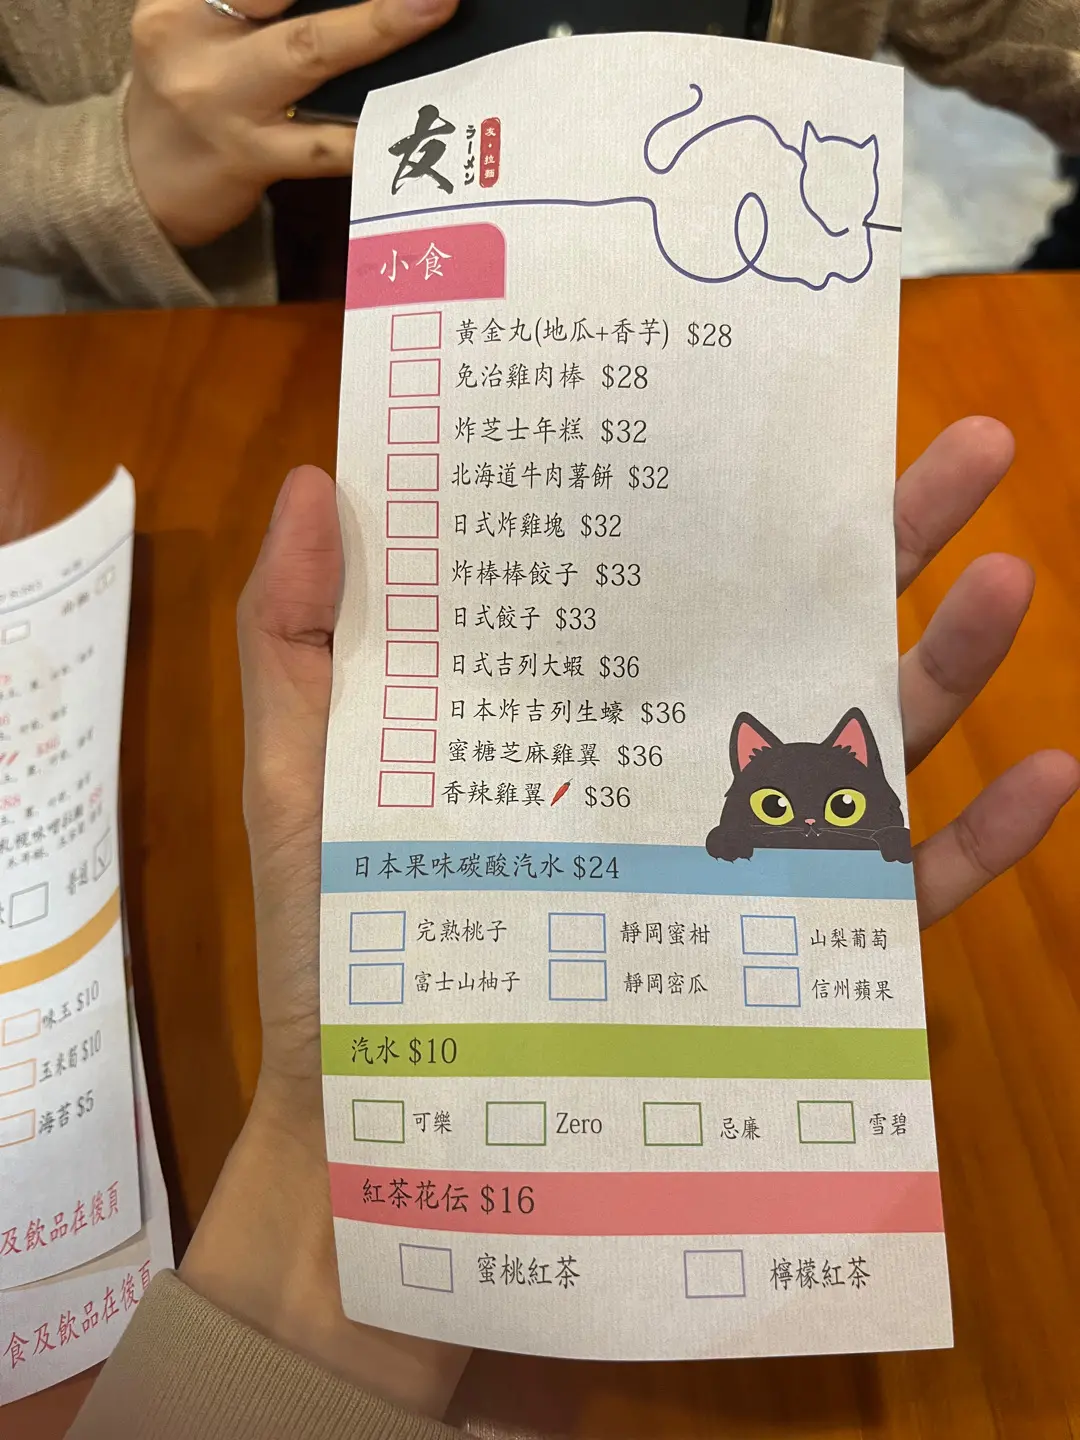 友
ラーメン
友・拉麵
小食
黃金丸(地瓜+香芋) $28
免治雞肉棒 $28
炸芝士年糕 $32
北海道牛肉薯餅 $32
日式炸雞塊 $32
炸棒棒餃子 $33
日式餃子 $33
日式吉列大蝦 $36
日本炸吉列生蠔 $36
蜜糖芝麻雞翼 $36
香辣雞翼 $36
日本果味碳酸汽水 $24
完熟桃子 靜岡蜜柑 山梨葡萄
富士山柚子 靜岡密瓜 信州蘋果
汽水 $10
可樂 Zero 忌廉 雪碧
紅茶花伝 $16
蜜桃紅茶 檸檬紅茶
普通
味玉 $10
玉米筍 $10
海苔 $5
及飲品在後頁
食及飲品在後頁